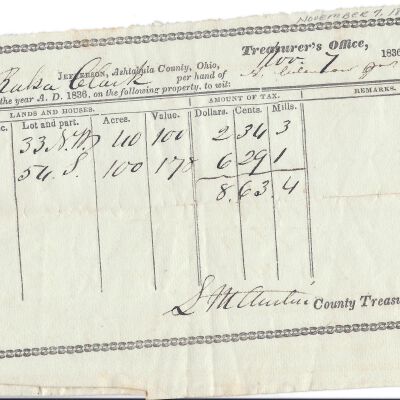 NOVEMBER 7, 18
Treasurer's Office,
JEFFERSON, Ashtabula County, Ohio, Nov. 7 1836
Clark per hand of
the year A. D. 1836, on the following property, to wit:
LANDS AND HOUSES. AMOUNT OF TAX. REMARKS.
Lot and part. Acres. Value. Dollars. Cents. Mills.
33 N.W 40 100 2 34 3
54 S. 100 178 6 29 1
8. 63. 4
S M Austin County Treasu